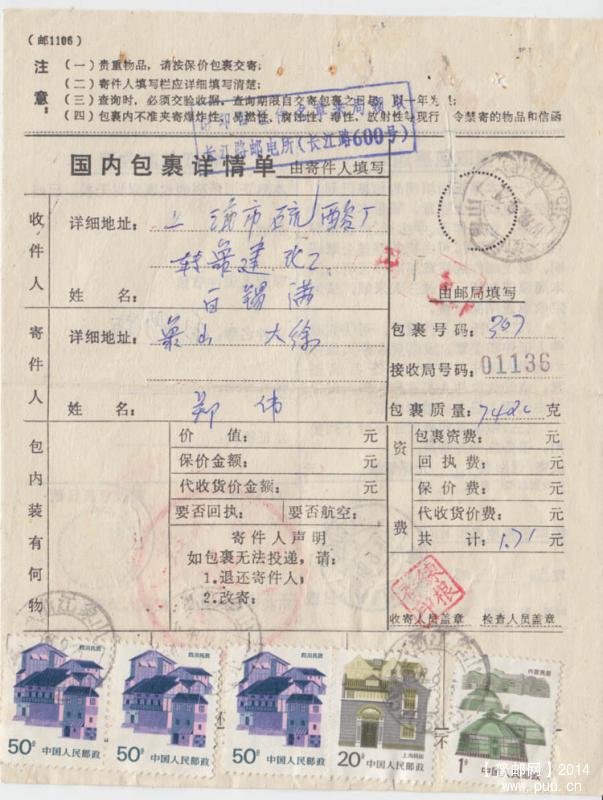 （邮1106）
注意：
（一）贵重物品，请按保价包裹交寄；
（二）寄件人填写栏应详细填写清楚；
（三）查询时，必须交验收据，查询期限自交寄包裹之日起，以一年为
（四）包裹内不准夹寄爆炸性、易燃性、腐蚀性、毒性、放射性等现行 令禁寄的物品和信函
长江路邮电所（长江路600号）
国内包裹详情单 由寄件人填写
收件人
详细地址：上海市硫酸厂
转 建
姓 名：白锡满
寄件人
详细地址：象山 大徐
姓 名：郑伟
由邮局填写
包裹号码：307
接收局号码：01136
包裹质量： 克
包内装有何物
价 值： 元
保价金额： 元
代收货价金额： 元
要否回执： 要否航空：
寄件人声明
如包裹无法投递，请：
1.退还寄件人；
2.改寄：
资费
包裹资费： 元
回执费： 元
保价费： 元
代收货价费： 元
共 计：1.71 元
收寄人员盖章 检查人员盖章
四川民居
50分 中国人民邮政
四川民居
50分 中国人民邮政
四川民居
50分 中国人民邮政
上海民居
20分 中国人民邮政
内蒙民居
1分 中国人民邮政
不
不
2014
www.puu.cn